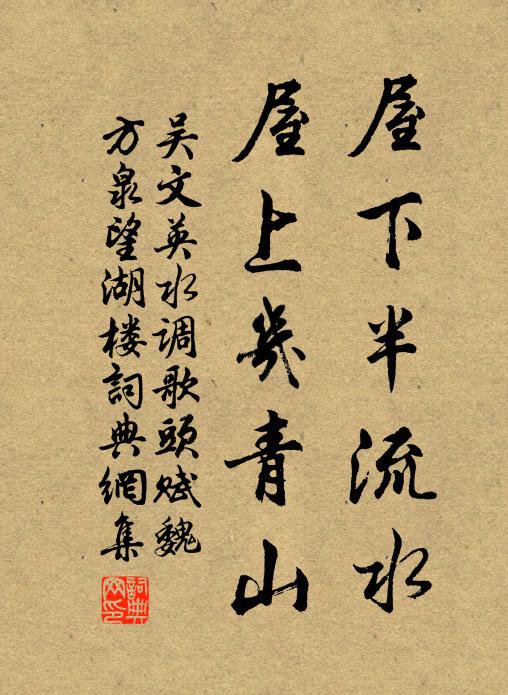 屋下半流水
屋上幾青山
吴文英水调歌頭賦魏
方泉望湖楼詞典網集
詞典网印